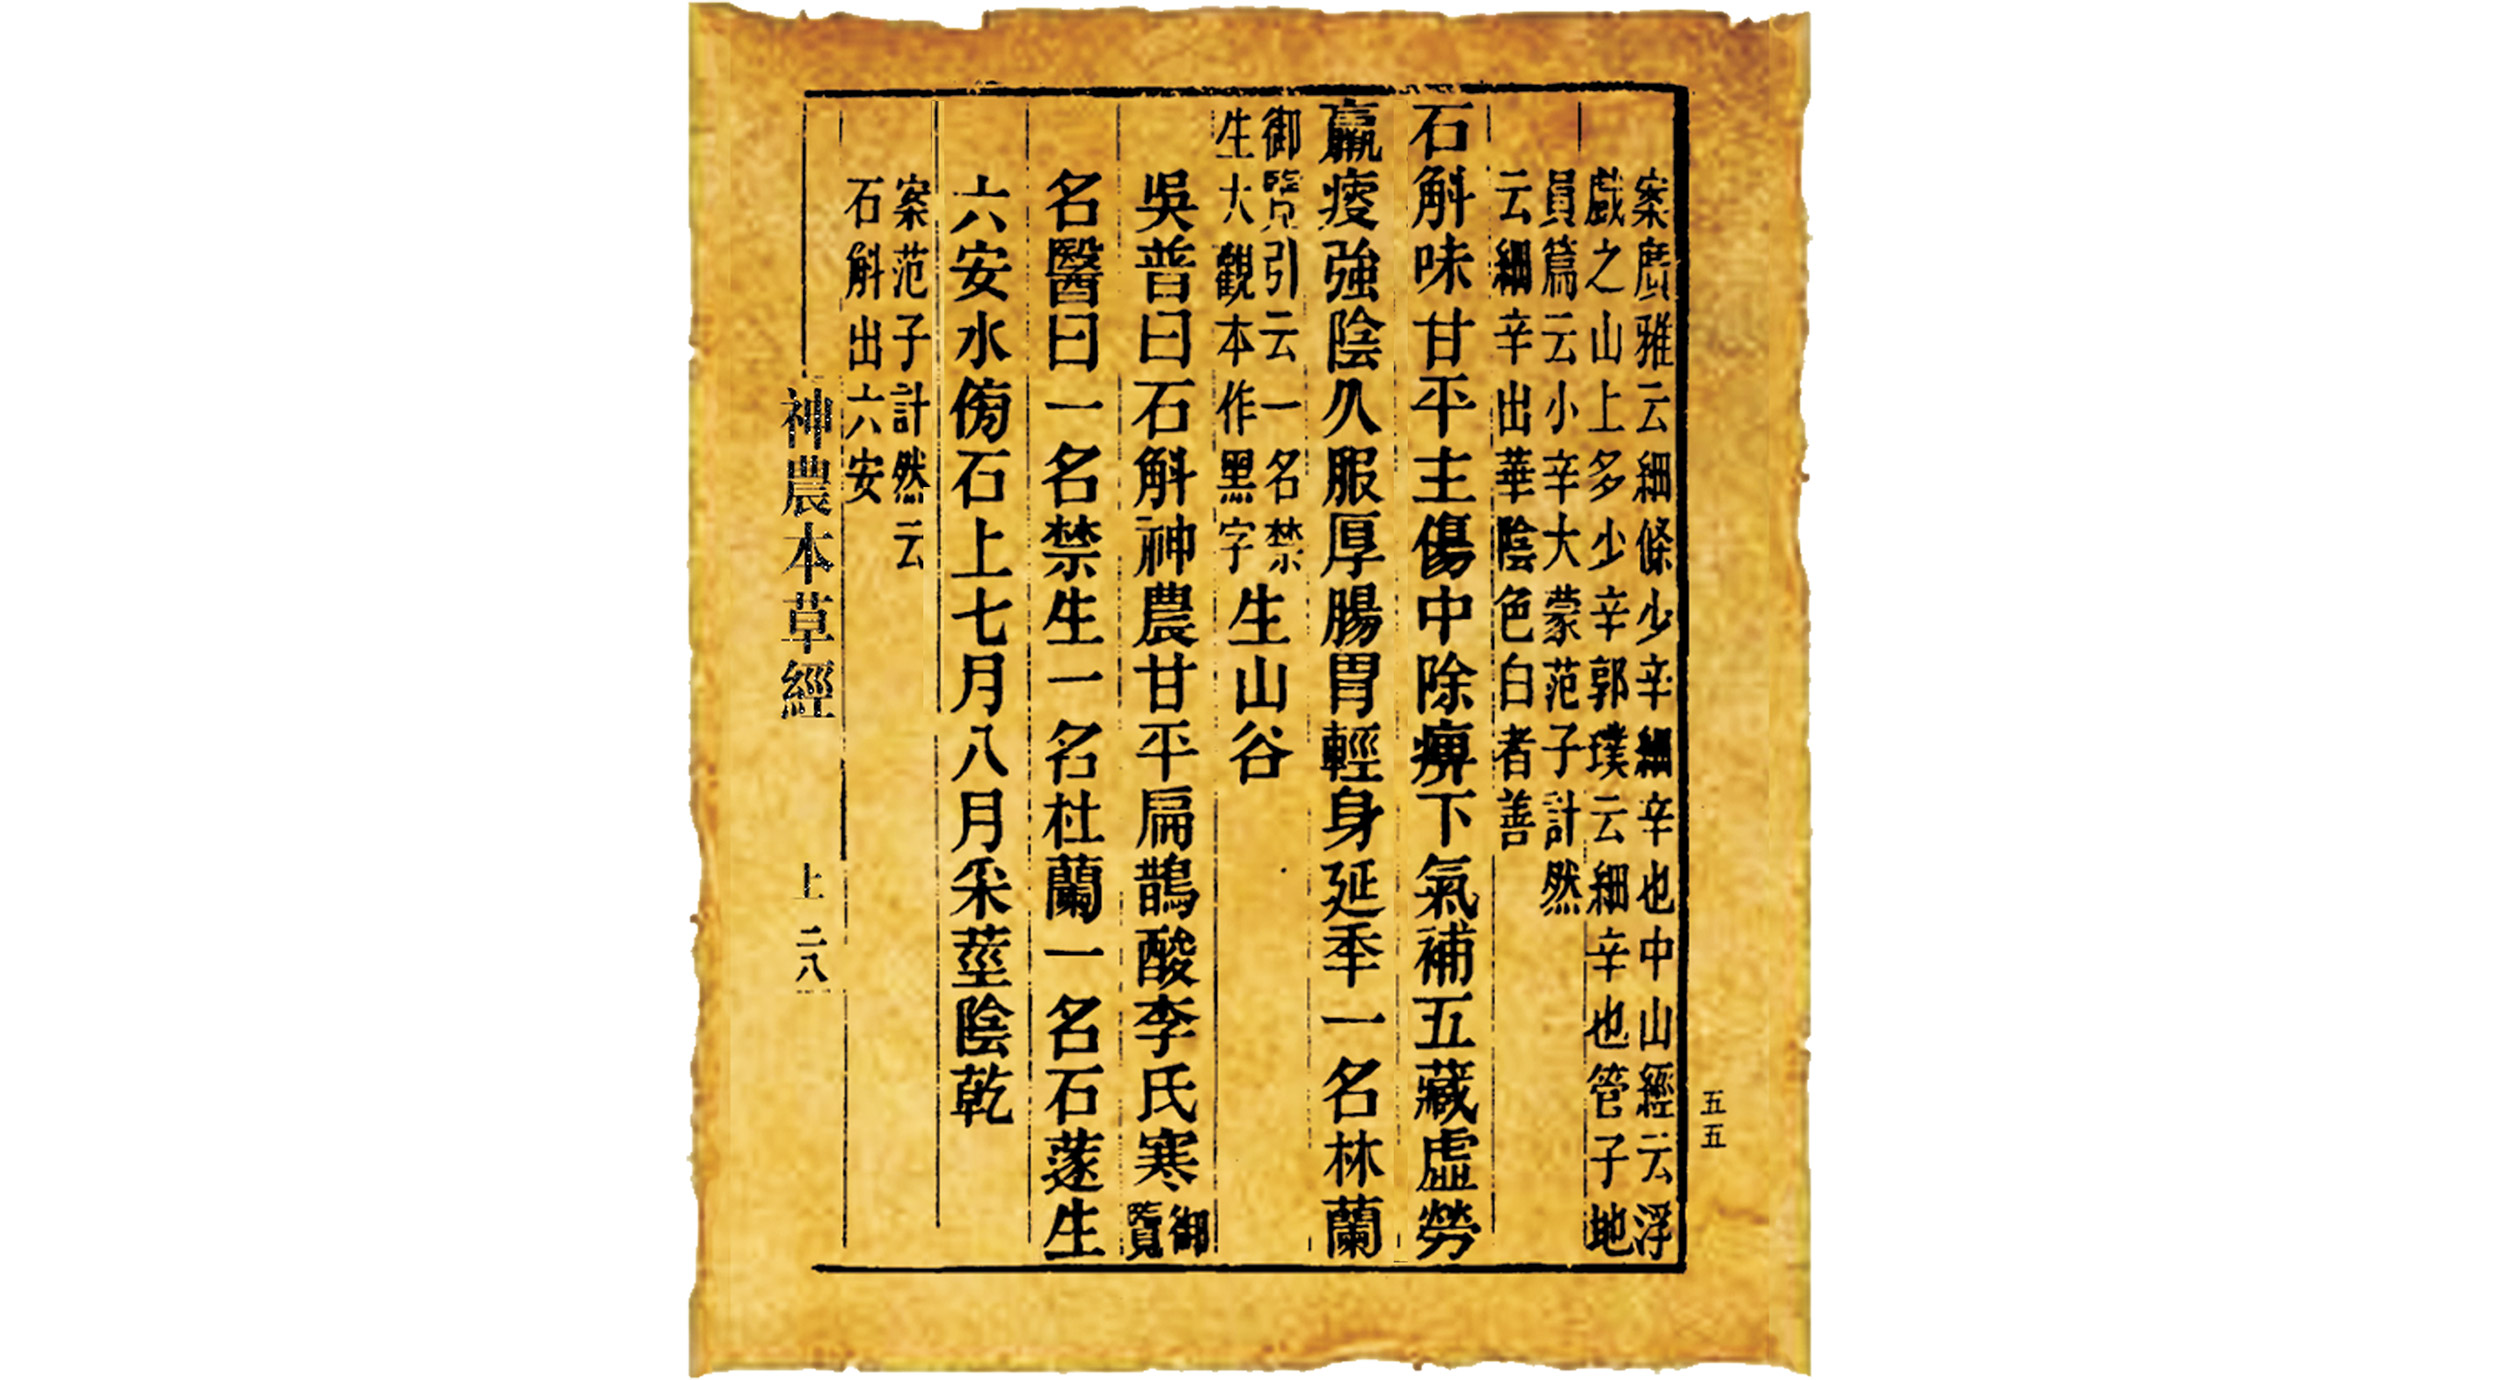 案廣雅云細條少辛細辛也中山經云浮
戲之山上多少辛郭璞云細辛也管子地
員篇云小辛大蒙范子計然
云細辛出華陰色白者善
石斛味甘平主傷中除痹下氣補五藏虛勞
羸痿強陰久服厚腸胃輕身延年一名林蘭
御覽引云一名禁
生大觀本作黑字
生山谷
吳普曰石斛神農甘平扁鵲酸李氏寒
御
覽
名醫曰一名禁生一名杜蘭一名石蓫生
六安水傍石上七月八月采莖陰乾
案范子計然云
石斛出六安
神農本草經
上
二八
五五